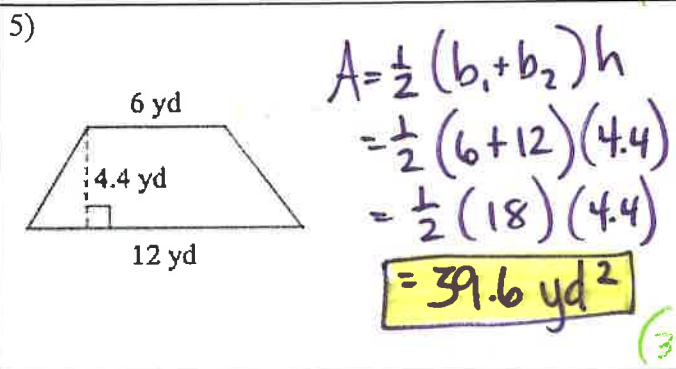 5)
6 yd
4.4 yd
12 yd
A = 1/2 (b₁ + b₂) h
= 1/2 (6 + 12) (4.4)
= 1/2 (18) (4.4)
= 39.6 yd²
(3